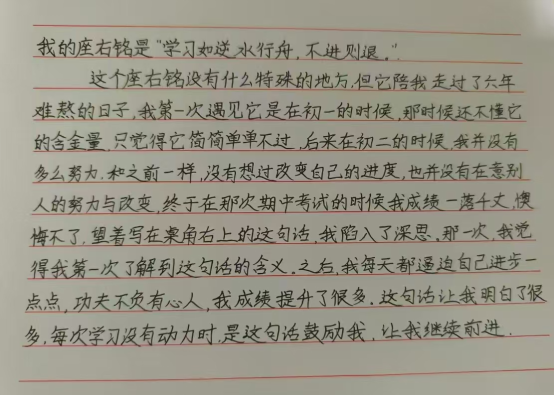 我的座右铭是"学习如逆水行舟,不进则退。"
这个座右铭没有什么特殊的地方,但它陪我走过了六年
难熬的日子,我第一次遇见它是在初一的时候,那时候还不懂它
的含金量,只觉得它简简单单不过,后来在初二的时候,我并没有
多么努力.和之前一样,没有想过改变自己的进度,也并没有在意别
人的努力与改变,终于在那次期中考试的时候我成绩一落千丈,懊
悔不了,望着写在桌角右上的这句话,我陷入了深思,那一次,我觉
得我第一次了解到这句话的含义.之后,我每天都逼迫自己进步一
点点,功夫不负有心人,我成绩提升了很多.这句话让我明白了很
多,每次学习没有动力时.是这句话鼓励我,让我继续前进.